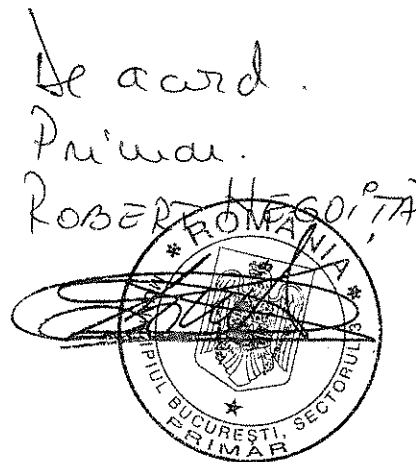 De acord.
Primar.
ROBERT NEGOIȚĂ
* ROMÂNIA *
MUNICIPIUL BUCUREȘTI, SECTORUL 3
PRIMAR